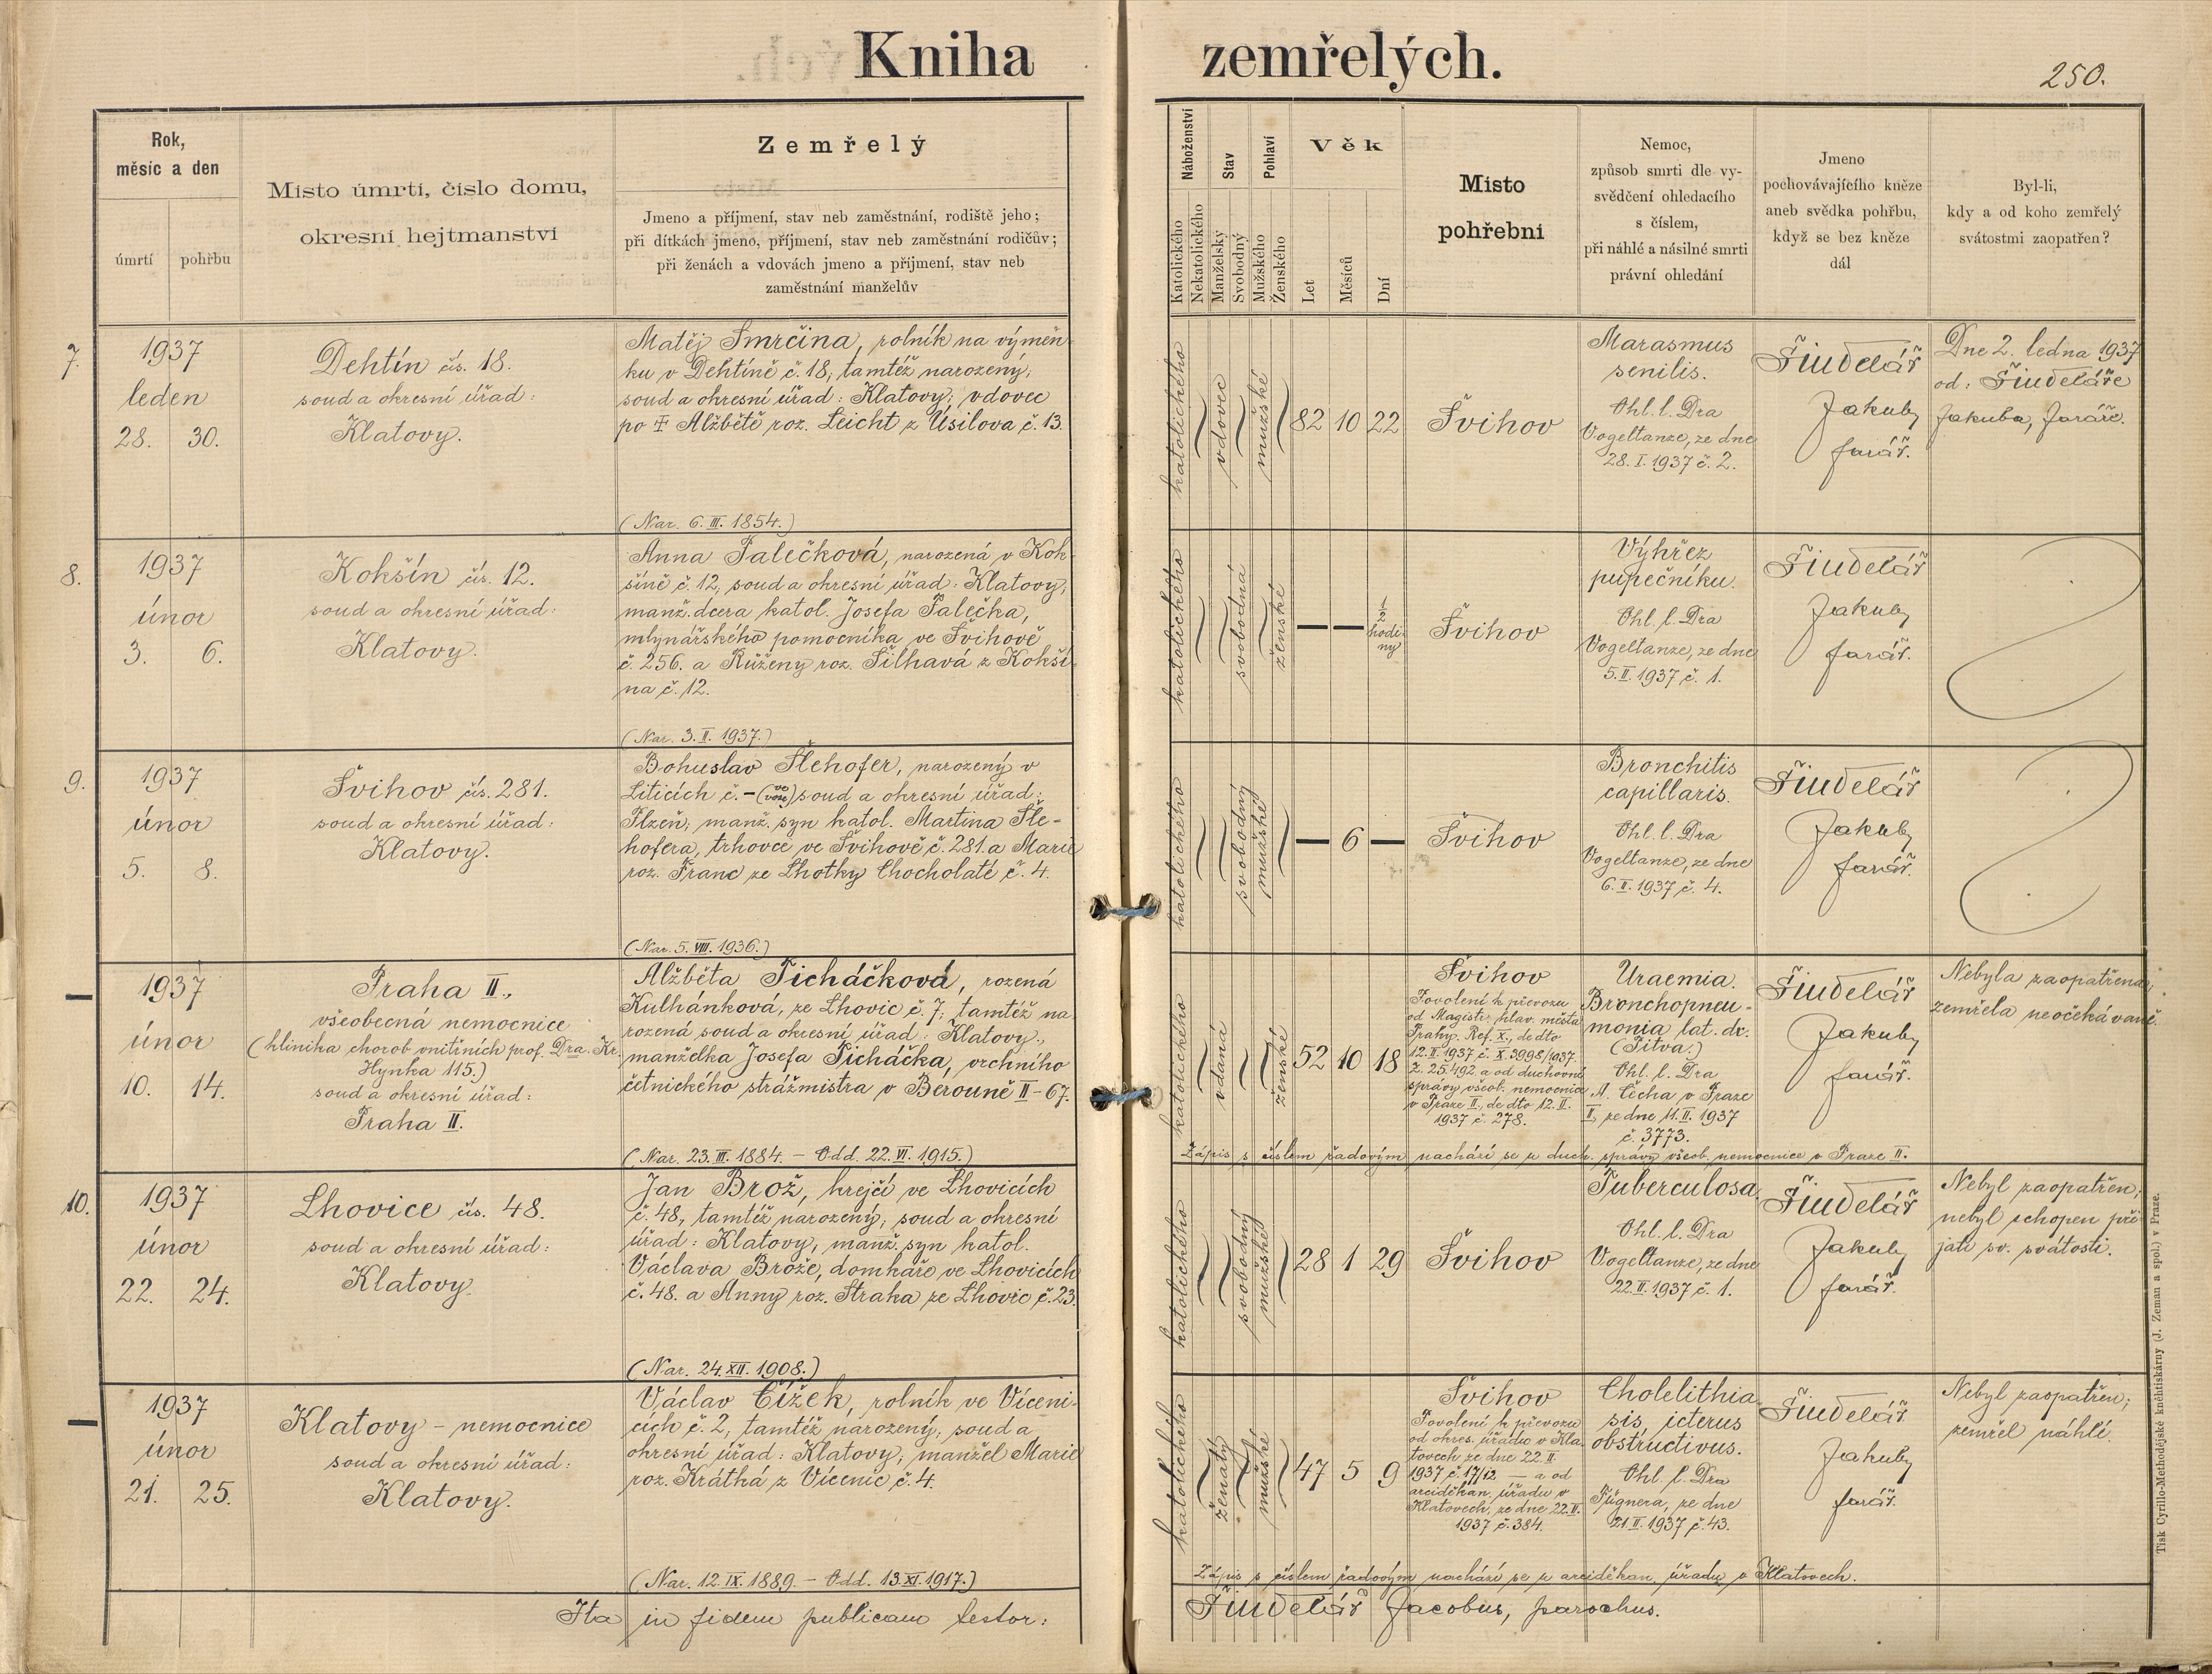 Kniha zemřelých.
250.
Rok,
měsíc a den
úmrtí
pohřbu
Místo úmrtí, číslo domu,
okresní hejtmanství
Zemřelý
Jmeno a příjmení, stav neb zaměstnání, rodiště jeho;
při dítkách jmeno, příjmení, stav neb zaměstnání rodičův;
při ženách a vdovách jmeno a příjmení, stav neb
zaměstnání manželův
Náboženství
Katolického
Nekatolického
Stav
Manželský
Svobodný
Pohlaví
Mužského
Ženského
Věk
Let
Měsíců
Dní
Místo
pohřební
Nemoc,
způsob smrti dle vy-
svědčení ohledacího
s číslem,
při náhlé a násilné smrti
právní ohledání
Jmeno
pochovávajícího kněze
aneb svědka pohřbu,
když se bez kněze
dál
Byl-li,
kdy a od koho zemřelý
svátostmi zaopatřen?
7.
1937
leden
28. 30.
Dehtín čís. 18.
soud a okresní úřad:
Klatovy.
Matěj Smrčina, rolník na výměn-
ku v Dehtíně č. 18, tamtéž narozený,
soud a okresní úřad: Klatovy; vdovec
po † Alžbětě roz. Leicht z Úsilova č. 13.
(Nar. 6. III. 1854.)
katolického
vdovec
mužské
82 10 22
Švihov
Marasmus
senilis.
Ohl. l. Dra
Vogeltanze, ze dne
28. I. 1937 č. 2.
Šindelář
Jakub,
farář.
Dne 2. ledna 1937
od: Šindeláře
Jakuba, faráře.
8.
1937
únor
3. 6.
Kokšín čís. 12.
soud a okresní úřad:
Klatovy.
Anna Palečková, narozená v Kok-
šíně č. 12, soud a okresní úřad: Klatovy,
manž. dcera katol. Josefa Palečka,
mlynářského pomocníka ve Švihově
č. 256. a Růženy roz. Šilhavá z Kokší-
na č. 12.
(Nar. 3. II. 1937.)
katolického
svobodná
ženské
— — 1/2 hodi-
ny
Švihov
Výhřez
pupečníku.
Ohl. l. Dra
Vogeltanze, ze dne
5. II. 1937 č. 1.
Šindelář
Jakub,
farář.
9.
1937
únor
5. 8.
Švihov čís. 281.
soud a okresní úřad:
Klatovy.
Bohuslav Šlehofer, narozený v
Liticích č. – (ve voze) soud a okresní úřad:
Plzeň; manž. syn katol. Martina Šle-
hofera, trhovce ve Švihově č. 281. a Marie
roz. Franc ze Lhotky Chocholaté č. 4.
(Nar. 5. VIII. 1936.)
katolického
svobodný
mužské
— 6 —
Švihov
Bronchitis
capillaris.
Ohl. l. Dra
Vogeltanze, ze dne
6. II. 1937 č. 4.
Šindelář
Jakub,
farář.
—
1937
únor
10. 14.
Praha II.,
všeobecná nemocnice
(klinika chorob vnitřních prof. Dra. Kr.
Hynka 115.)
soud a okresní úřad:
Praha II.
Alžběta Ticháčková, rozená
Kulhánková, ze Lhovic č. 7; tamtéž na
rozená soud a okresní úřad: Klatovy.,
manželka Josefa Ticháčka, vrchního
četnického strážmistra v Berouně II – 67.
(Nar. 23. III. 1884. – Odd. 22. VI. 1915.)
katolického
vdaná
ženské
52 10 18
Švihov
Povolení k převozu
od Magistr. hlav. města
Prahy, Ref. X., de dto
12. II. 1937 č. X. 3998/1937.
ž. 25.492. a od duchovní
správy všeob. nemocnice
v Praze II., de dto 12. II.
1937 č. 278.
Uraemia.
Bronchopneu-
monia lat. dx.
(Pitva.)
Ohl. l. Dra
A. Čecha v Praze
II, ze dne 11. II. 1937
č. 3773.
Šindelář
Jakub,
farář.
Nebyla zaopatřena;
zemřela neočekávaně.
Zápis s číslem řadovým nachází se u duch. správy všeob. nemocnice v Praze II.
10.
1937
únor
22. 24.
Lhovice čís. 48.
soud a okresní úřad:
Klatovy.
Jan Brož, krejčí ve Lhovicích
č. 48, tamtéž narozený, soud a okresní
úřad: Klatovy, manž. syn katol.
Václava Brože, domkáře ve Lhovicích
č. 48. a Anny roz. Straka ze Lhovic č. 23.
(Nar. 24. XII. 1908.)
katolického
svobodný
mužské
28 1 29
Švihov
Tuberculosa.
Ohl. l. Dra
Vogeltanze, ze dne
22. II. 1937 č. 1.
Šindelář
Jakub,
farář.
Nebyl zaopatřen;
nebyl schopen při-
jati sv. svátosti.
—
1937
únor
21. 25.
Klatovy – nemocnice
soud a okresní úřad:
Klatovy.
Václav Čížek, rolník ve Víceni-
cích č. 2, tamtéž narozený, soud a
okresní úřad: Klatovy, manžel Marie
roz. Krátká z Vícenic č. 4.
(Nar. 12. IX. 1889. – Odd. 13. XI. 1917.)
katolického
ženatý
mužské
47 5 9
Švihov
Povolení k převozu
od okres. úřadu v Kla
tovech ze dne 22. II.
1937 č. 17/12 — a od
arciděkan. úřadu v
Klatovech, ze dne 22. II.
1937 č. 384.
Cholelithia-
sis, icterus
obstructivus.
Ohl. l. Dra
Fügnera, ze dne
21. II. 1937 č. 43.
Šindelář
Jakub,
farář.
Nebyl zaopatřen;
zemřel náhle.
Zápis s číslem řadovým nachází se u arciděkan. úřadu v Klatovech.
Ita in fidem publicam testor:
Šindelář Jacobus, parochus.
Tisk Cyrillo-Methodějské kněhtiskárny (J. Zeman a spol.) v Praze.